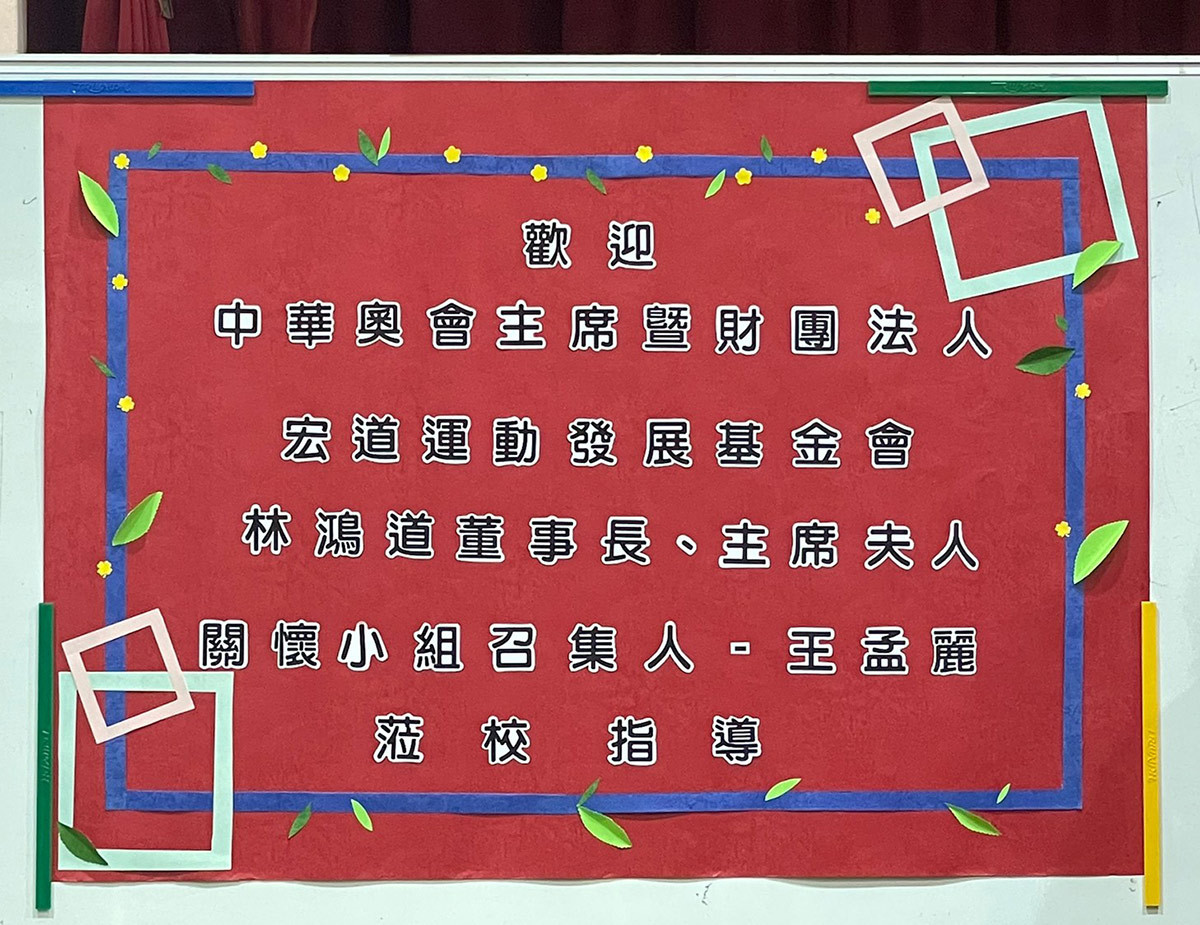 歡迎
中華奧會主席暨財團法人
宏道運動發展基金會
林鴻道董事長、主席夫人
關懷小組召集人-王孟麗
蒞校指導